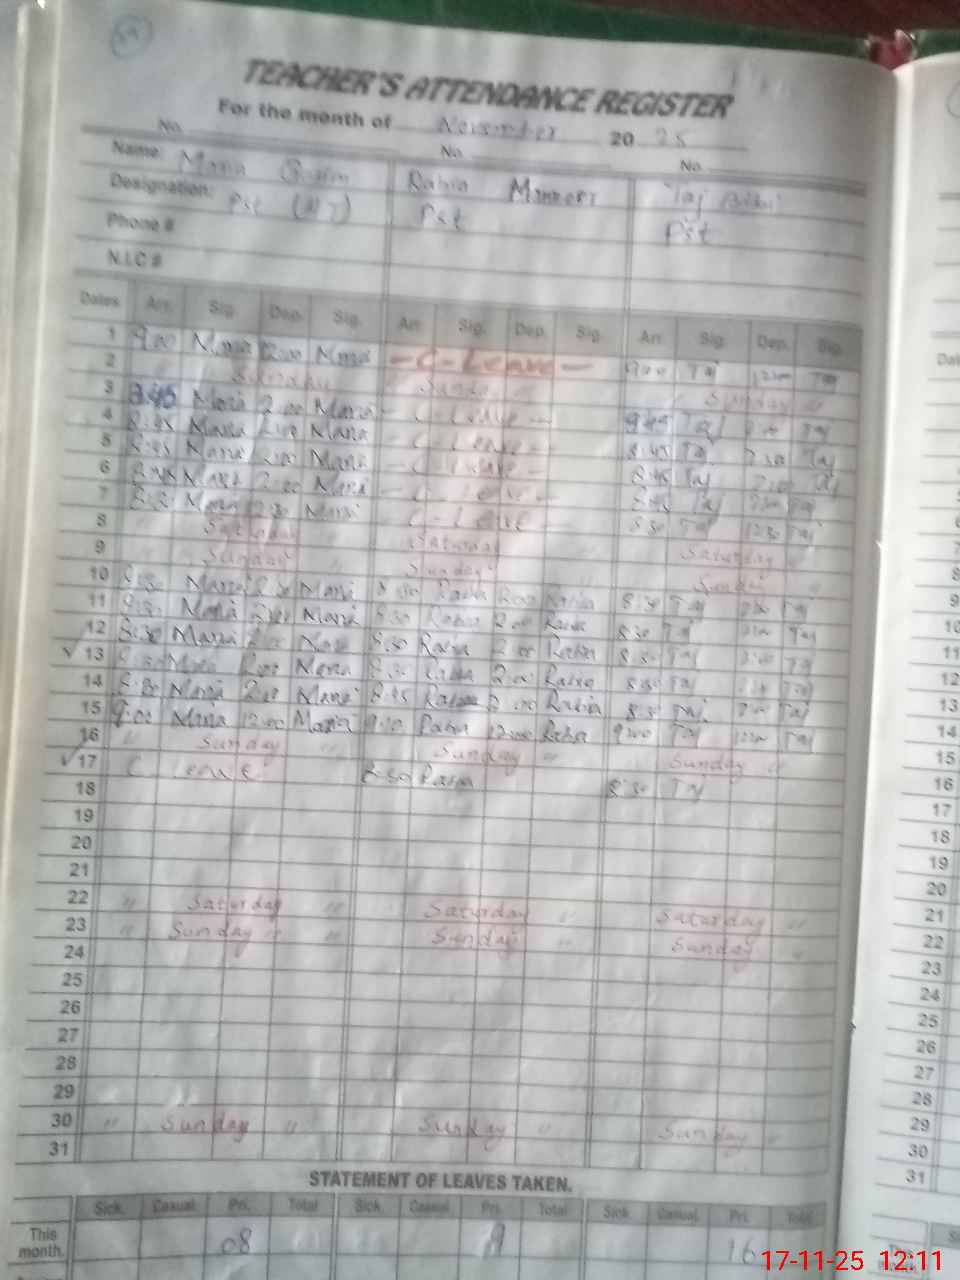 TEACHER'S ATTENDANCE REGISTER
For the month of November 20 25
No. No. No.
Name: Maria Rabia Taj Bibi
Designation: Pst Pst Pst
Phone #
N.I.C #
Dates Arr. Sig. Dep. Sig. Arr. Sig. Dep. Sig. Arr. Sig. Dep. Sig.
1 9:00 Maria 12:00 Maria - C - Leave - 9:00 Taj 12:00 Taj
2 Sunday Sunday Sunday "
3 8:45 Maria 2:00 Maria - C - Leave - Taj Taj
4 8:45 Maria 2:00 Maria - C - Leave - 8:45 Taj Taj
5 8:45 Maria 2:00 Maria - C - Leave - 8:45 Taj 2:00 Taj
6 8:45 Maria 2:00 Maria - C - Leave - 8:45 Taj Taj
7 8:30 Maria 12:30 Maria - C - Leave - 8:30 Taj 12:30 Taj
8 " Saturday " Saturday Saturday "
9 Sunday " Sunday Sunday "
10 8:30 Maria Maria 8:30 Rabia 2:00 Rabia 8:30 Taj Taj
11 8:30 Maria 2:00 Maria 8:30 Rabia 2:00 Rabia 8:30 Taj Taj
12 8:30 Maria 2:00 Maria 8:30 Rabia 2:00 Rabia 8:30 Taj 2:00 Taj
✓ 13 8:30 Maria 2:00 Maria 8:30 Rabia 2:00 Rabia 8:30 Taj Taj
14 8:30 Maria 2:00 Maria 8:45 Rabia 2:00 Rabia 8:30 Taj Taj
15 9:00 Maria 12:00 Maria 9:00 Rabia 12:00 Rabia 9:00 Taj 12:00 Taj
16 " Sunday Sunday " Sunday "
✓ 17 C Leave 8:30 Rabia 8:30 Taj
18
19
20
21
22 " Saturday " Saturday " Saturday "
23 " Sunday " " Sunday " Sunday "
24
25
26
27
28
29
30 " Sunday " Sunday " Sunday "
31
STATEMENT OF LEAVES TAKEN.
Sick Casual Pri. Total Sick Casual Pri. Total Sick Casual Pri. Total
This month. 08 16
17-11-25 12:11